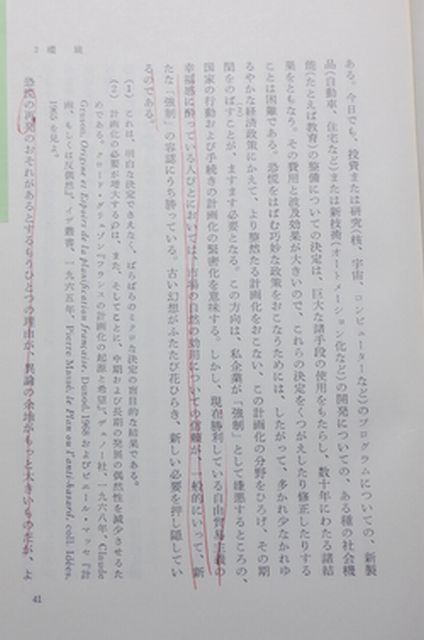 2 環境
ある。今日でも、投資または研究(核、宇宙、コンピューターなど)のプログラムについての、新製
品(自動車、住宅など)または新技術(オートメーション化など)の開発についての、ある種の社会機
能(たとえば教育)の整備についての決定は、巨大な諸手段の使用をもたらし、数十年にわたる諸結
果をともなう。その費用と波及効果が大きいので、これらの決定をくつがえしたり修正したりする
ことは困難である。恐慌をはばむ巧妙な政策をおこなうためには、したがって、多かれ少なかれゆ
るやかな経済政策にかえて、より整然たる計画化をおこない、この計画化の分野をひろげ、その期
間をのばすことが、ますます必要となる。この方向は、私企業が「強制」として嫌悪するところの、
国家の行動および手続きの計画化の緊密化を意味する。しかし、現在勝利している自由貿易主義の
幸福感に酔っている人びとにおいては、市場の自然の効用についての信頼が、一般的にいって、新
たな「強制」の容認にうち勝っている。古い幻想がふたたび花ひらき、新しい必要を押し隠してい
るのである。
(1) これは、明白な決定でさえなく、ばらばらのミクロな決定の盲目的な結果である。
(2) 計画化の必要が増大するのは、また、そしてことに、中期および長期の発展の偶然性を減少させるた
めである。クロード・グリュソン『フランスの計画化の起源と希望』デュノー社、一九六八年、Claude
Gruson, Origine et Espoirs de la planification française, Dunod, 1968 およびピエール・マッセ『計
画、もしくは反偶然』、イデ叢書、一九六五年、Pierre Massé, le Plan ou l'anti-hasard, coll. Idées,
1965 を見よ。
恐慌の再発のおそれがあるとするもうひとつの理由が、異論の余地がもっと大きいものだが、よ
41